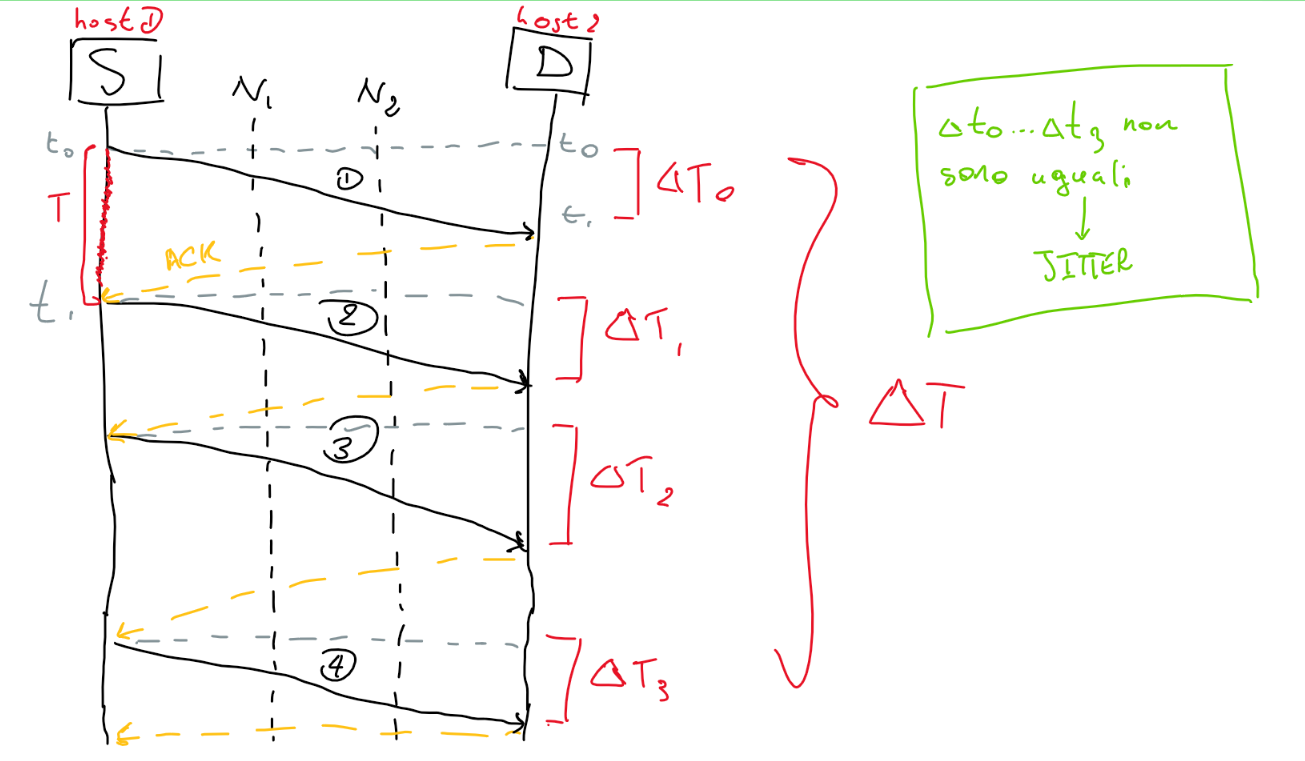 host 1
host 2
S
D
N1
N2
t0
t0
T
1
ΔT0
t1
ACK
t1
2
ΔT1
3
ΔT2
4
ΔT3
ΔT
Δt0...Δt3 non
sono uguali
↓
JITTER